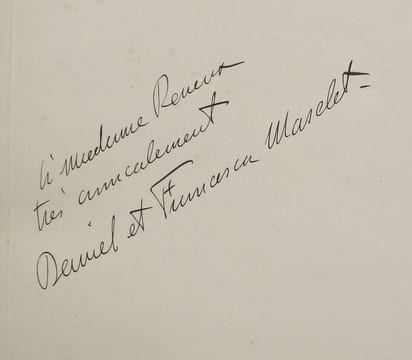 à madame Renoux
très amicalement
Daniel et Francesca Masclet